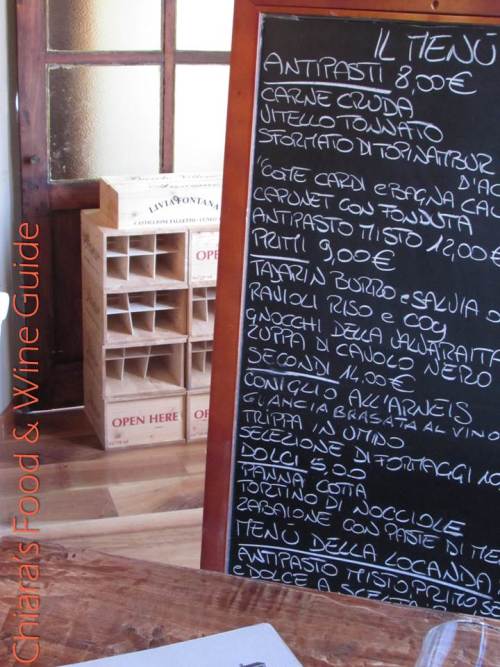 IL MENÙ
ANTIPASTI 8,00€
CARNE CRUDA
VITELLO TONNATO
SFORMATO DI TOPINAMBUR
D'AC
"COSTE CARDI e BAGNA CAU
CAPONET CON FONDUTA
ANTIPASTO MISTO 12,00€
PRIMI 9,00€
TAJARIN BURRO e SALVIA O
RAVIOLI RISO e COU
GNOCCHI DELLA VALVARAITA
ZUPPA DI CAVOLO NERO
SECONDI 14.00€
CONIGLIO ALL'ARNEIS
GUANCIA BRASATA AL VINO
TRIPPA IN UMIDO
SELEZIONE DI FORMAGGI 10
DOLCI 5,00
PANNA COTTA
TORTINO DI NOCCIOLE
ZABAIONE CON PASTE DI ME
MENÙ DELLA LOCANDA
ANTIPASTO MISTO, PRIMO, SE
e DOLCE A SCELTA
LIVIA FONTANA
CASTIGLIONE FALLETTO
OPEN
OPEN HERE
Chiara's Food & Wine Guide